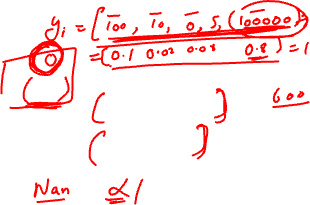 yi = [100, 10, 0, 5, (100000)]
= (0.1 0.02 0.08 0.8) = 1
( ] 600
( ]
Nan α1